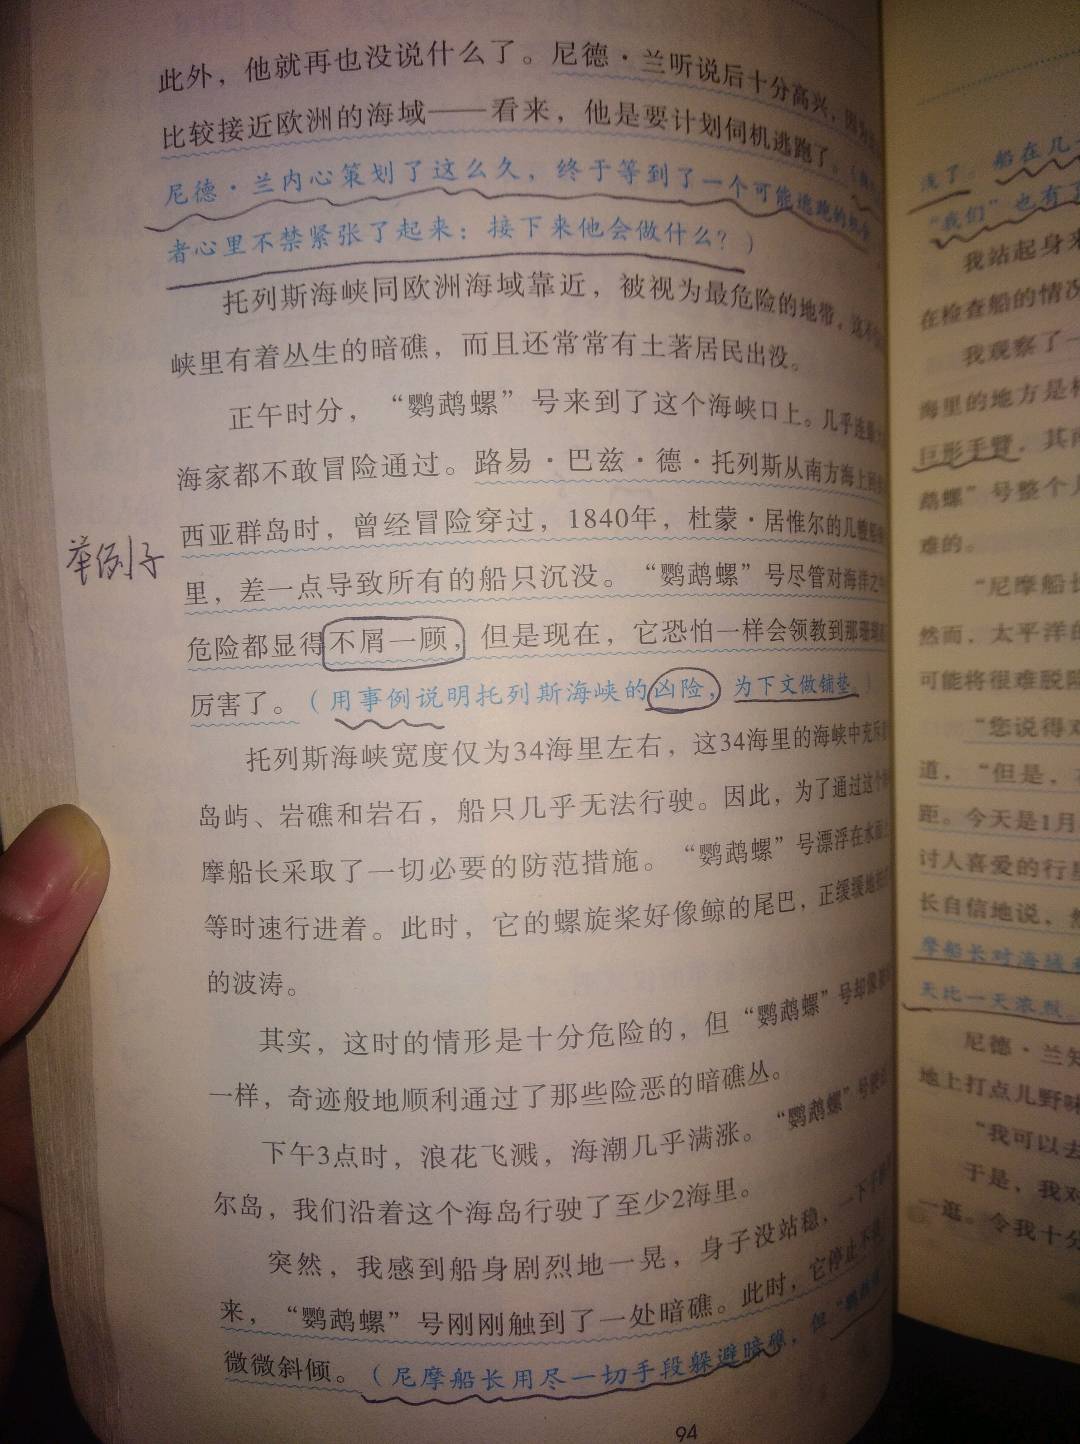 此外，他就再也没说什么了。尼德·兰听说后十分高兴，因为
比较接近欧洲的海域——看来，他是要计划伺机逃跑了。（
尼德·兰内心策划了这么久，终于等到了一个可能逃跑的机会
者心里不禁紧张了起来：接下来他会做什么？）
托列斯海峡同欧洲海域靠近，被视为最危险的地带，这不
峡里有着丛生的暗礁，而且还常常有土著居民出没。
正午时分，“鹦鹉螺”号来到了这个海峡口上。几乎连
海家都不敢冒险通过。路易·巴兹·德·托列斯从南方海上
西亚群岛时，曾经冒险穿过，1840年，杜蒙·居惟尔的几艘船
举例子
里，差一点导致所有的船只沉没。“鹦鹉螺”号尽管对海洋之
危险都显得不屑一顾，但是现在，它恐怕一样会领教到那珊瑚
厉害了。（用事例说明托列斯海峡的凶险，为下文做铺垫。）
托列斯海峡宽度仅为34海里左右，这34海里的海峡中充斥
岛屿、岩礁和岩石，船只几乎无法行驶。因此，为了通过这个
摩船长采取了一切必要的防范措施。“鹦鹉螺”号漂浮在水面
等时速行进着。此时，它的螺旋桨好像鲸的尾巴，正缓缓地
的波涛。
其实，这时的情形是十分危险的，但“鹦鹉螺”号却像
一样，奇迹般地顺利通过了那些险恶的暗礁丛。
下午3点时，浪花飞溅，海潮几乎满涨。“鹦鹉螺”号
尔岛，我们沿着这个海岛行驶了至少2海里。
突然，我感到船身剧烈地一晃，身子没站稳，一下子
来，“鹦鹉螺”号刚刚触到了一处暗礁。此时，它停止不
微微斜倾。（尼摩船长用尽一切手段躲避暗礁，但“鹦鹉螺
94
浅了。船在几
“我们”也有了
我站起身来
在检查船的情况
我观察了一
海里的地方是
巨形手臂，其
鹉螺”号整个
难的。
“尼摩船长
然而，太平洋的
可能将很难脱
“您说得对
道，“但是，
距。今天是1月
讨人喜爱的行星
长自信地说，
摩船长对海域
天比一天浓烈。
尼德·兰知
地上打点儿野味
“我可以去
于是，我对
一逛。令我十分